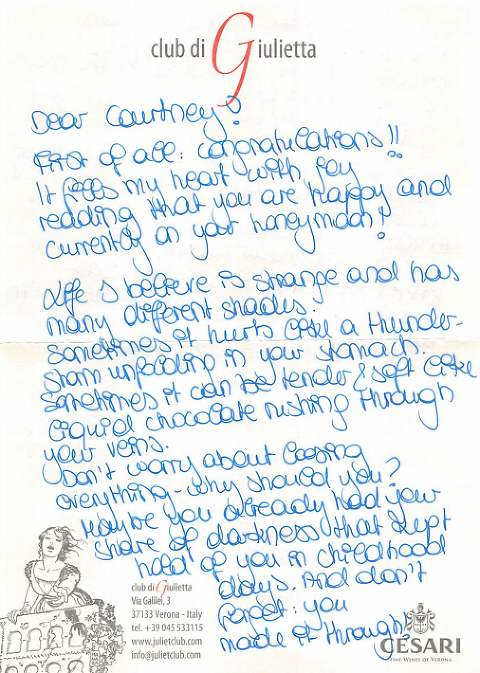 club di Giulietta
Dear Courtney!
First of all: congratulations!!
It fills my heart with joy
reading that you are happy and
currently on your honeymoon!
Life I believe is strange and has
many different shades.
Sometimes it hurts like a thunder-
storm unfolding in your stomach.
Sometimes it can be tender & soft like
liquid chocolate rushing through
your veins.
Don't worry about loosing
everything - why should you?
Maybe you already had your
share of darkness that kept
hold of you in childhood
days. And don't
forget: you
made it through!
club di Giulietta
Via Galilei, 3
37133 Verona - Italy
tel. +39 045 533115
www.julietclub.com
info@julietclub.com
CESARI
FINE WINES OF VERONA